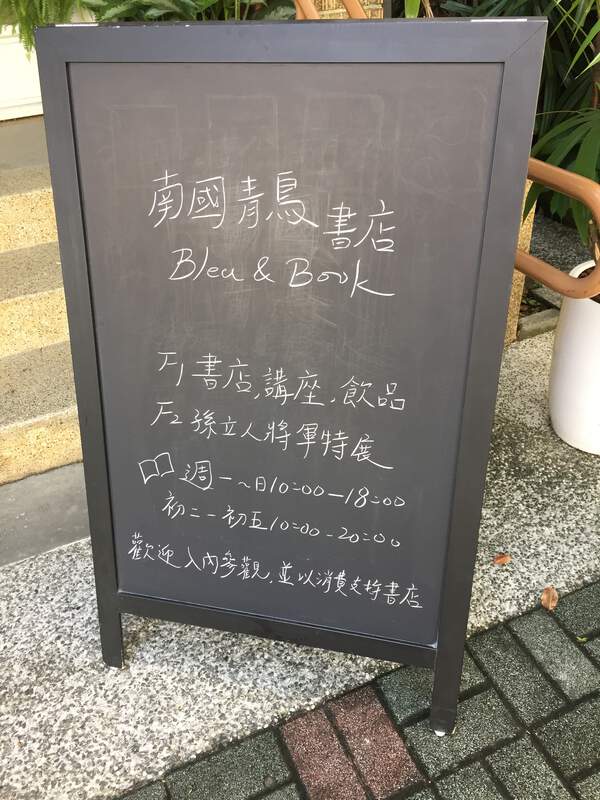 南國青鳥書店
Bleu & Book
F1 書店.講座.飲品
F2 孫立人將軍特展
週一～日10:00-18:00
初二-初五10:00-20:00
歡迎入內參觀,並以消費支持書店